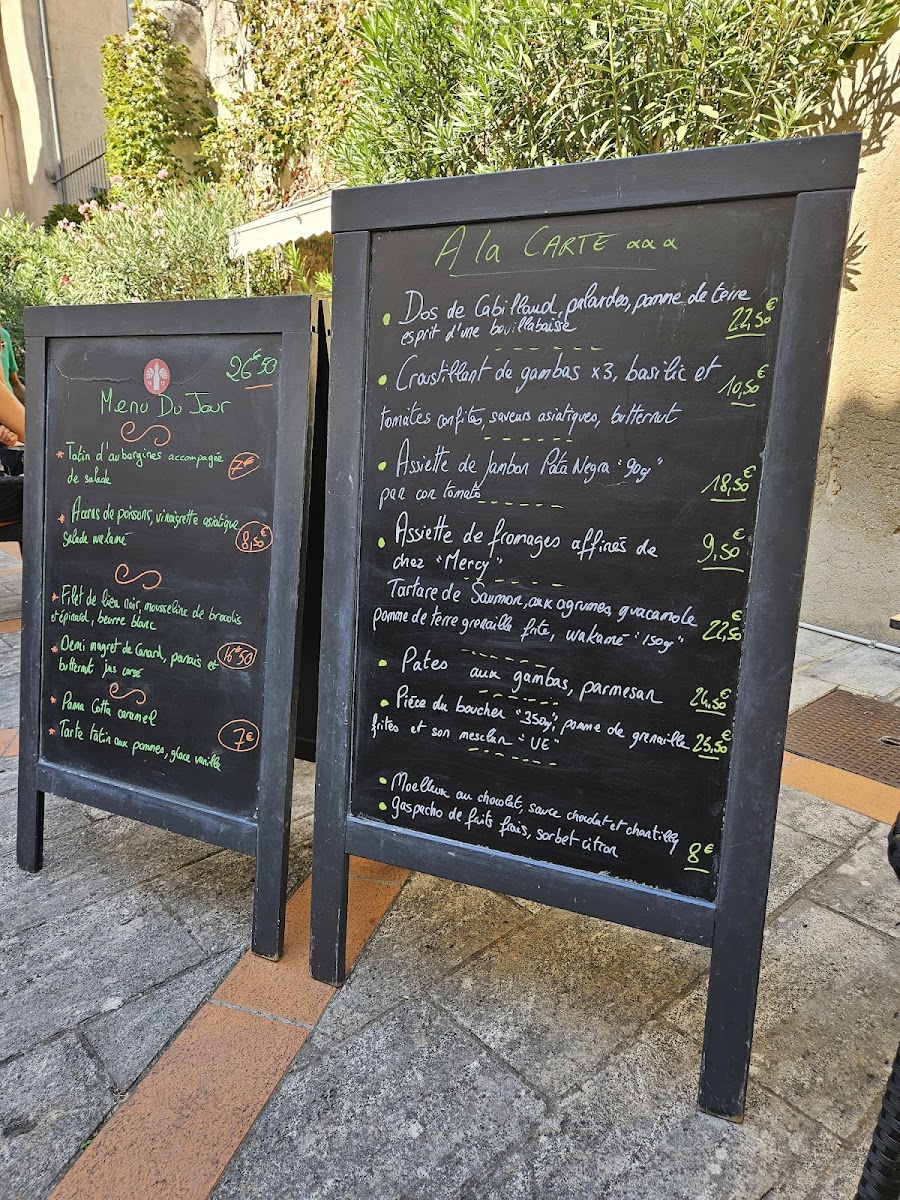 26€50
Menu Du Jour
* Tatin d'aubergines accompagnée
de salade
7€
* Acras de poissons, vinaigrette asiatique
Salade wakamé
8,50€
* Filet de lieu noir, mousseline de brocolis
et épinard, beurre blanc
* Demi magret de Canard, panais et
butternut jus corsé
16€50
* Panna Cotta caramel
* Tarte tatin aux pommes, glace vanille
7€
A la CARTE
• Dos de Cabillaud, palourdes, pomme de terre
esprit d'une bouillabaise
22,50€
• Croustillant de gambas x3, basilic et
tomates confites, saveurs asiatiques, butternut
10,50€
• Assiette de Jambon Pata Negra "90g"
pan con tomate
18,50€
• Assiette de fromages affinés de
chez "Mercy"
9,50€
Tartare de Saumon, aux agrumes, guacamole
pomme de terre grenaille frite, wakamé "150g"
22,50€
• Pates aux gambas, parmesan
24,50€
• Pièce du boucher "350g", pomme de grenaille
frites et son mesclun "UE"
25,50€
• Moelleux au chocolat, sauce chocolat et chantilly
• Gaspacho de fruits frais, sorbet citron
8€